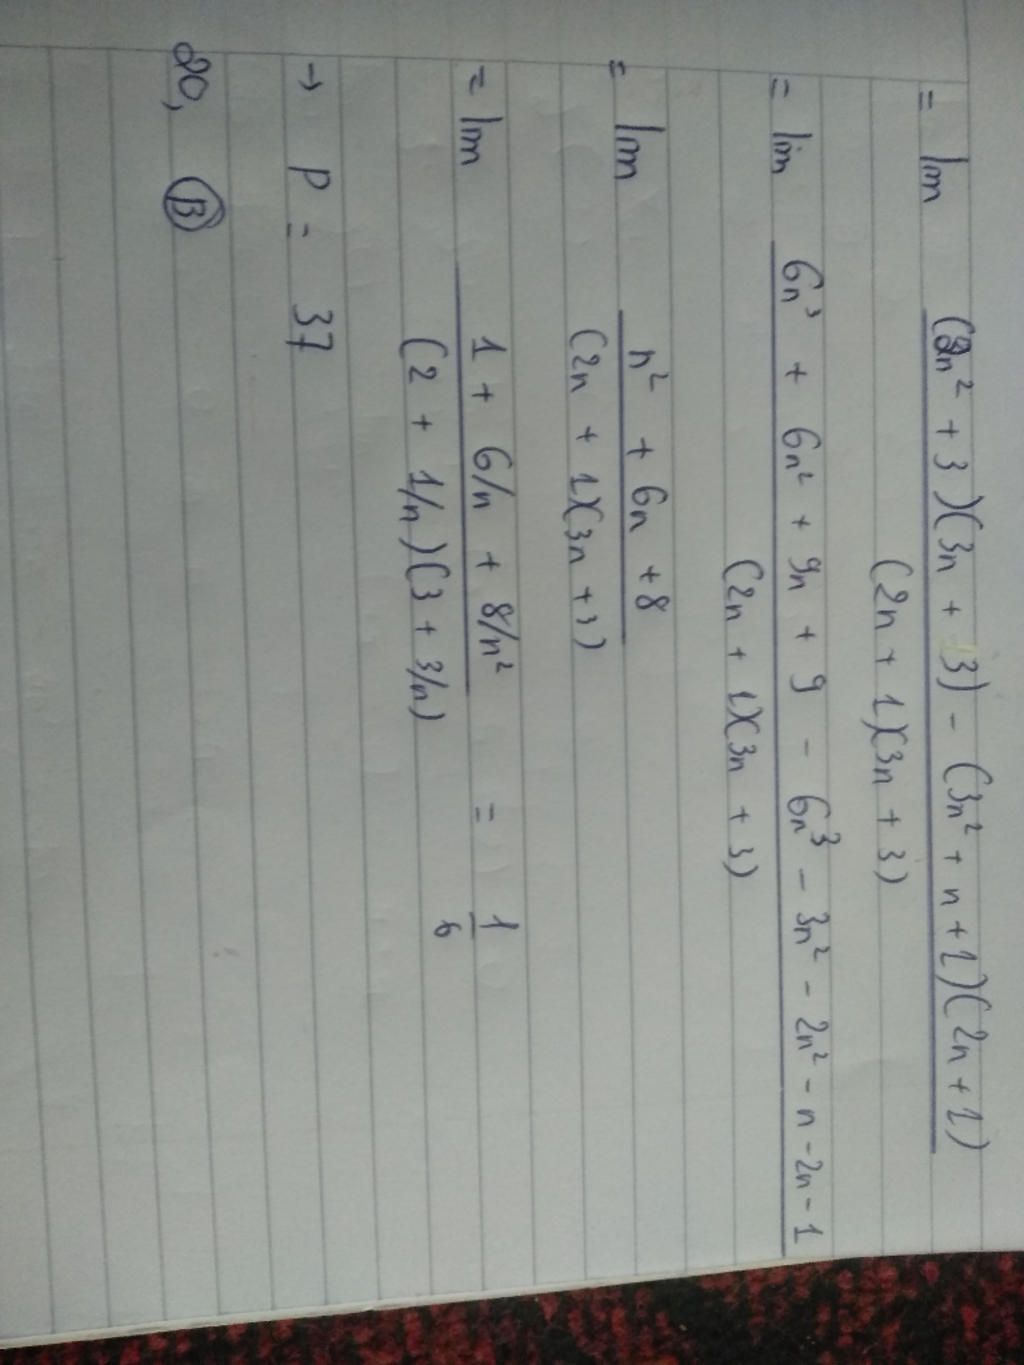 = lim (2n² + 3)(3n + 3) - (3n² + n + 1)(2n + 1)
(2n + 1)(3n + 3)
= lim 6n³ + 6n² + 9n + 9 - 6n³ - 3n² - 2n² - n - 2n - 1
(2n + 1)(3n + 3)
= lim n² + 6n + 8
(2n + 1)(3n + 3)
= lim 1 + 6/n + 8/n² = 1
(2 + 1/n)(3 + 3/n) 6
→ P = 37
20, B